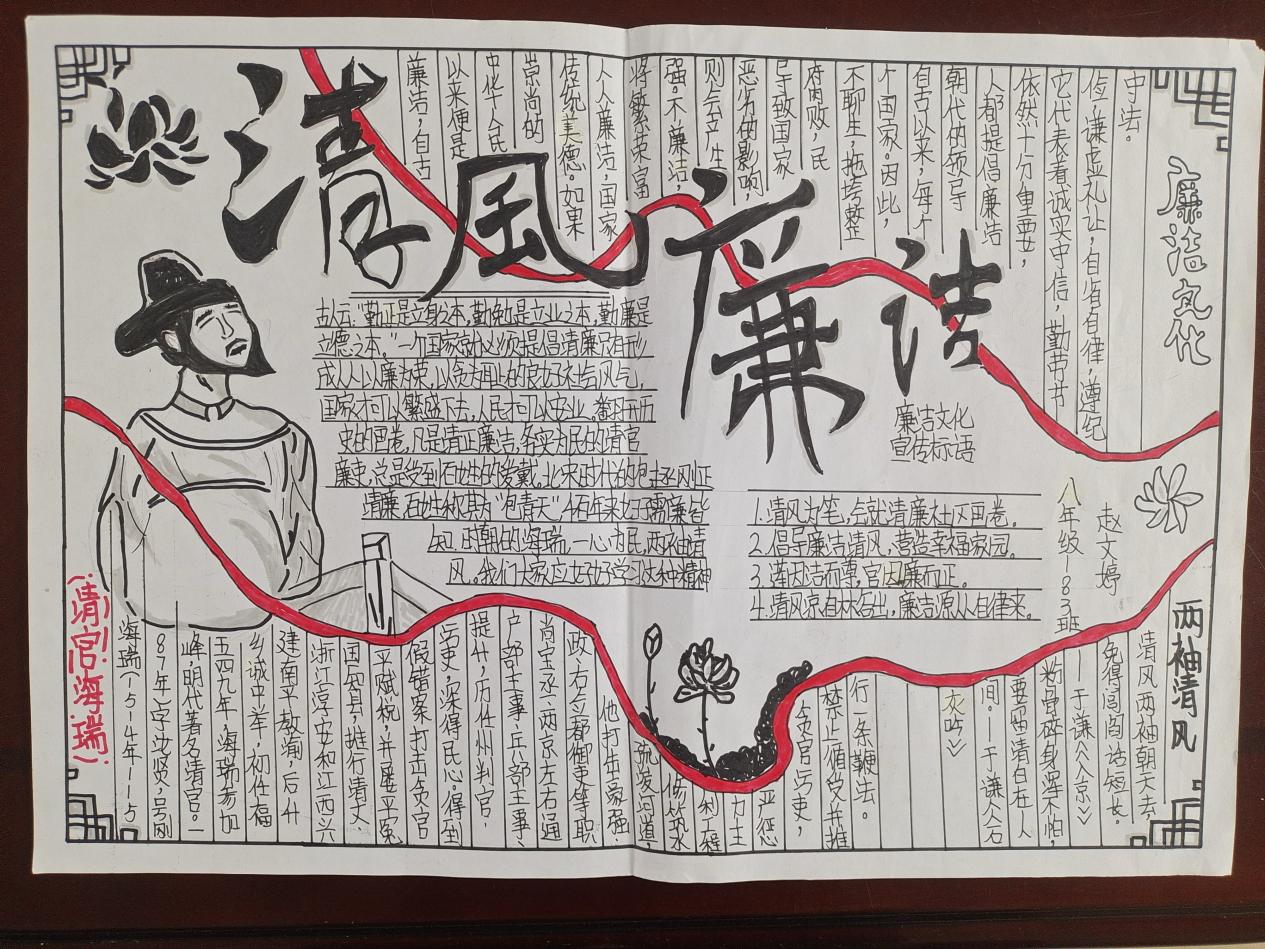 清风廉洁
廉洁文化
守法。
俭,谦虚礼让,自省自律,遵纪
它代表着诚实守信,勤劳节
依然十分重要,
人都提倡廉洁
朝代的领导
自古以来,每个
个国家。因此,
不聊生,拖垮整
腐败,民
导致国家
恶劣的影响,
则会产生
强。不廉洁,
将繁荣富
人人廉洁,国家
传统美德。如果
崇尚的
中华人民
以来便是
廉洁,自古
古人云:“勤正是立身之本,勤勉是立业之本,勤廉是
立德之本。”一个国家就必须提倡清廉只有形
成人人以廉为荣,以贪为耻的良好社会风气,
国家才可以繁盛下去,人民才可以安业,翻开历
史的画卷,凡是清正廉洁,务实为民的清官
廉吏,总是受到百姓的爱戴,北宋时代的包拯风正
清廉,百姓称其为“包青天”,400年来妇孺廉皆
知,明朝的海瑞,一心为民,两袖清
风。我们大家应好好学习这种精神
廉洁文化
宣传标语
1.清风为笔,绘就清廉社区画卷。
2.倡导廉洁清风,营造幸福家园。
3.莲因洁而尊,官因廉而正。
4.清风京自林谷出,廉洁原从自律来。
赵文婷
八年级183班
两袖清风
清风两袖朝天去,
免得闾阎话短长。
——于谦《入京》
粉骨碎身浑不怕,
要留清白在人
间。——于谦《石
灰吟》
(清官海瑞)
海瑞(1514年—15
87年)字汝贤,号刚
峰,明代著名清官。一
五四九年,海瑞参加
乡试中举,初任福
建南平教渝,后升
浙江淳安和江西兴
国知县,推行清丈、
平赋税,并屡平冤
假错案打击贪官
污吏,深得民心。得到
提升,历任州判官、
户部主事、兵部主事、
尚宝丞、两京左右通
政、右佥都御史等职
他打击豪强
疏浚河道,
修筑水
利工程
力主
严惩
贪官污吏,
禁止徇受并推
行一条鞭法。